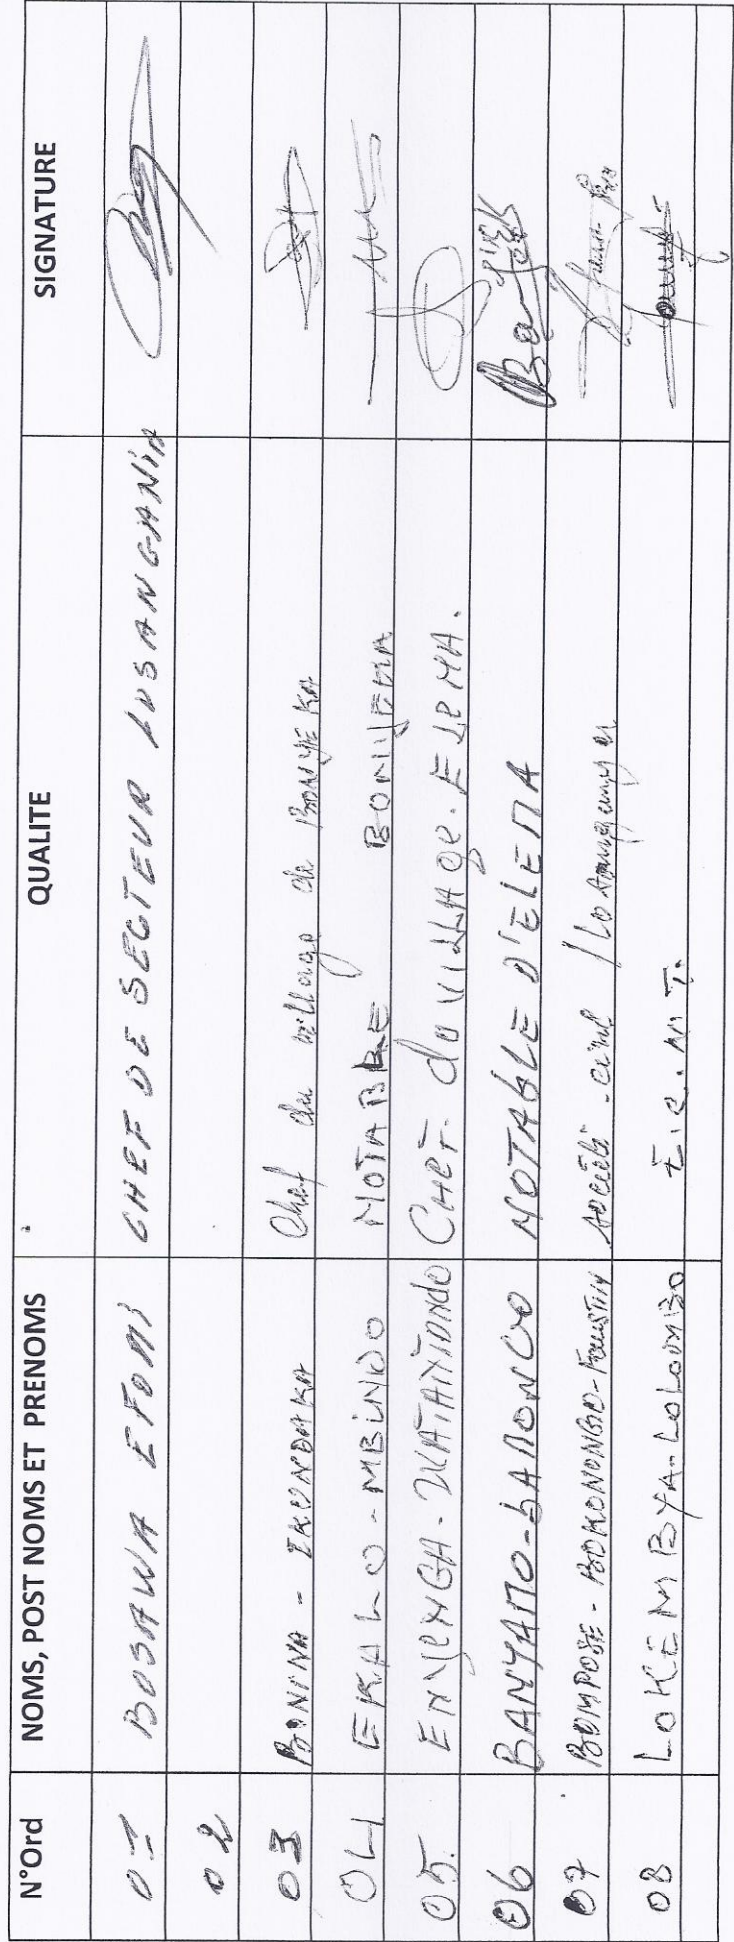 N°Ord NOMS, POST NOMS ET PRENOMS QUALITE SIGNATURE
01 BOSAWA EFOMI CHEF DE SECTEUR LUSANGANIA
02
03 BONINA - IKONDAKA Chef du village de BONYEKA
04 EKALO - MBINDO NOTABLE BONYEKA
05. ENYENGA - Chef du VILLAGE. ELEMA.
06 BANYAMO-BAMONGO NOTABLE D'ELEMA
07 BOMPOSE - BOKONONGO-Faustin société civile
08 LOKEMBYA-LOLOOMBO